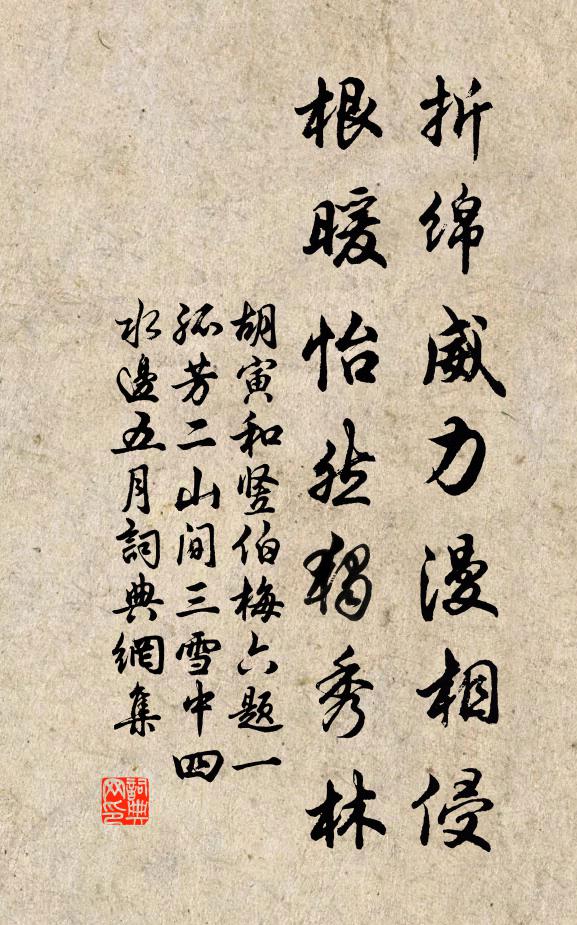 折绵威力漫相侵
根暖怡然独秀林
胡寅和竖伯梅六题一
孤芳二山间三雪中四
水邊五月詞典網集
詞典网印